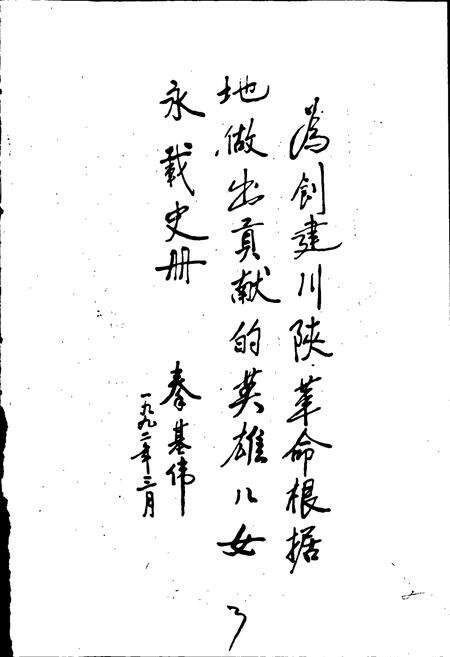 为创建川陕革命根据
地做出貢献的英雄儿女
永载史册
秦基伟
一九九二年三月